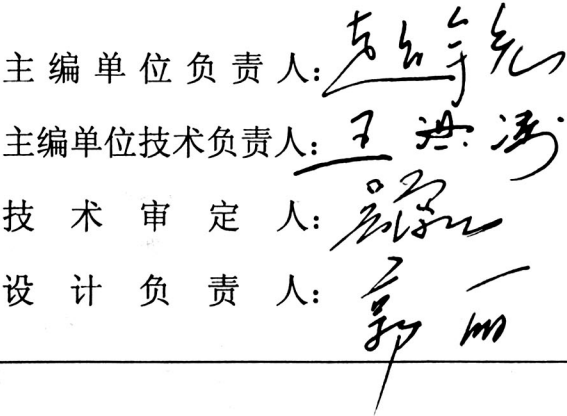 主编单位负责人:
主编单位技术负责人:王洪涛
技术审定人:
设计负责人:郭丽